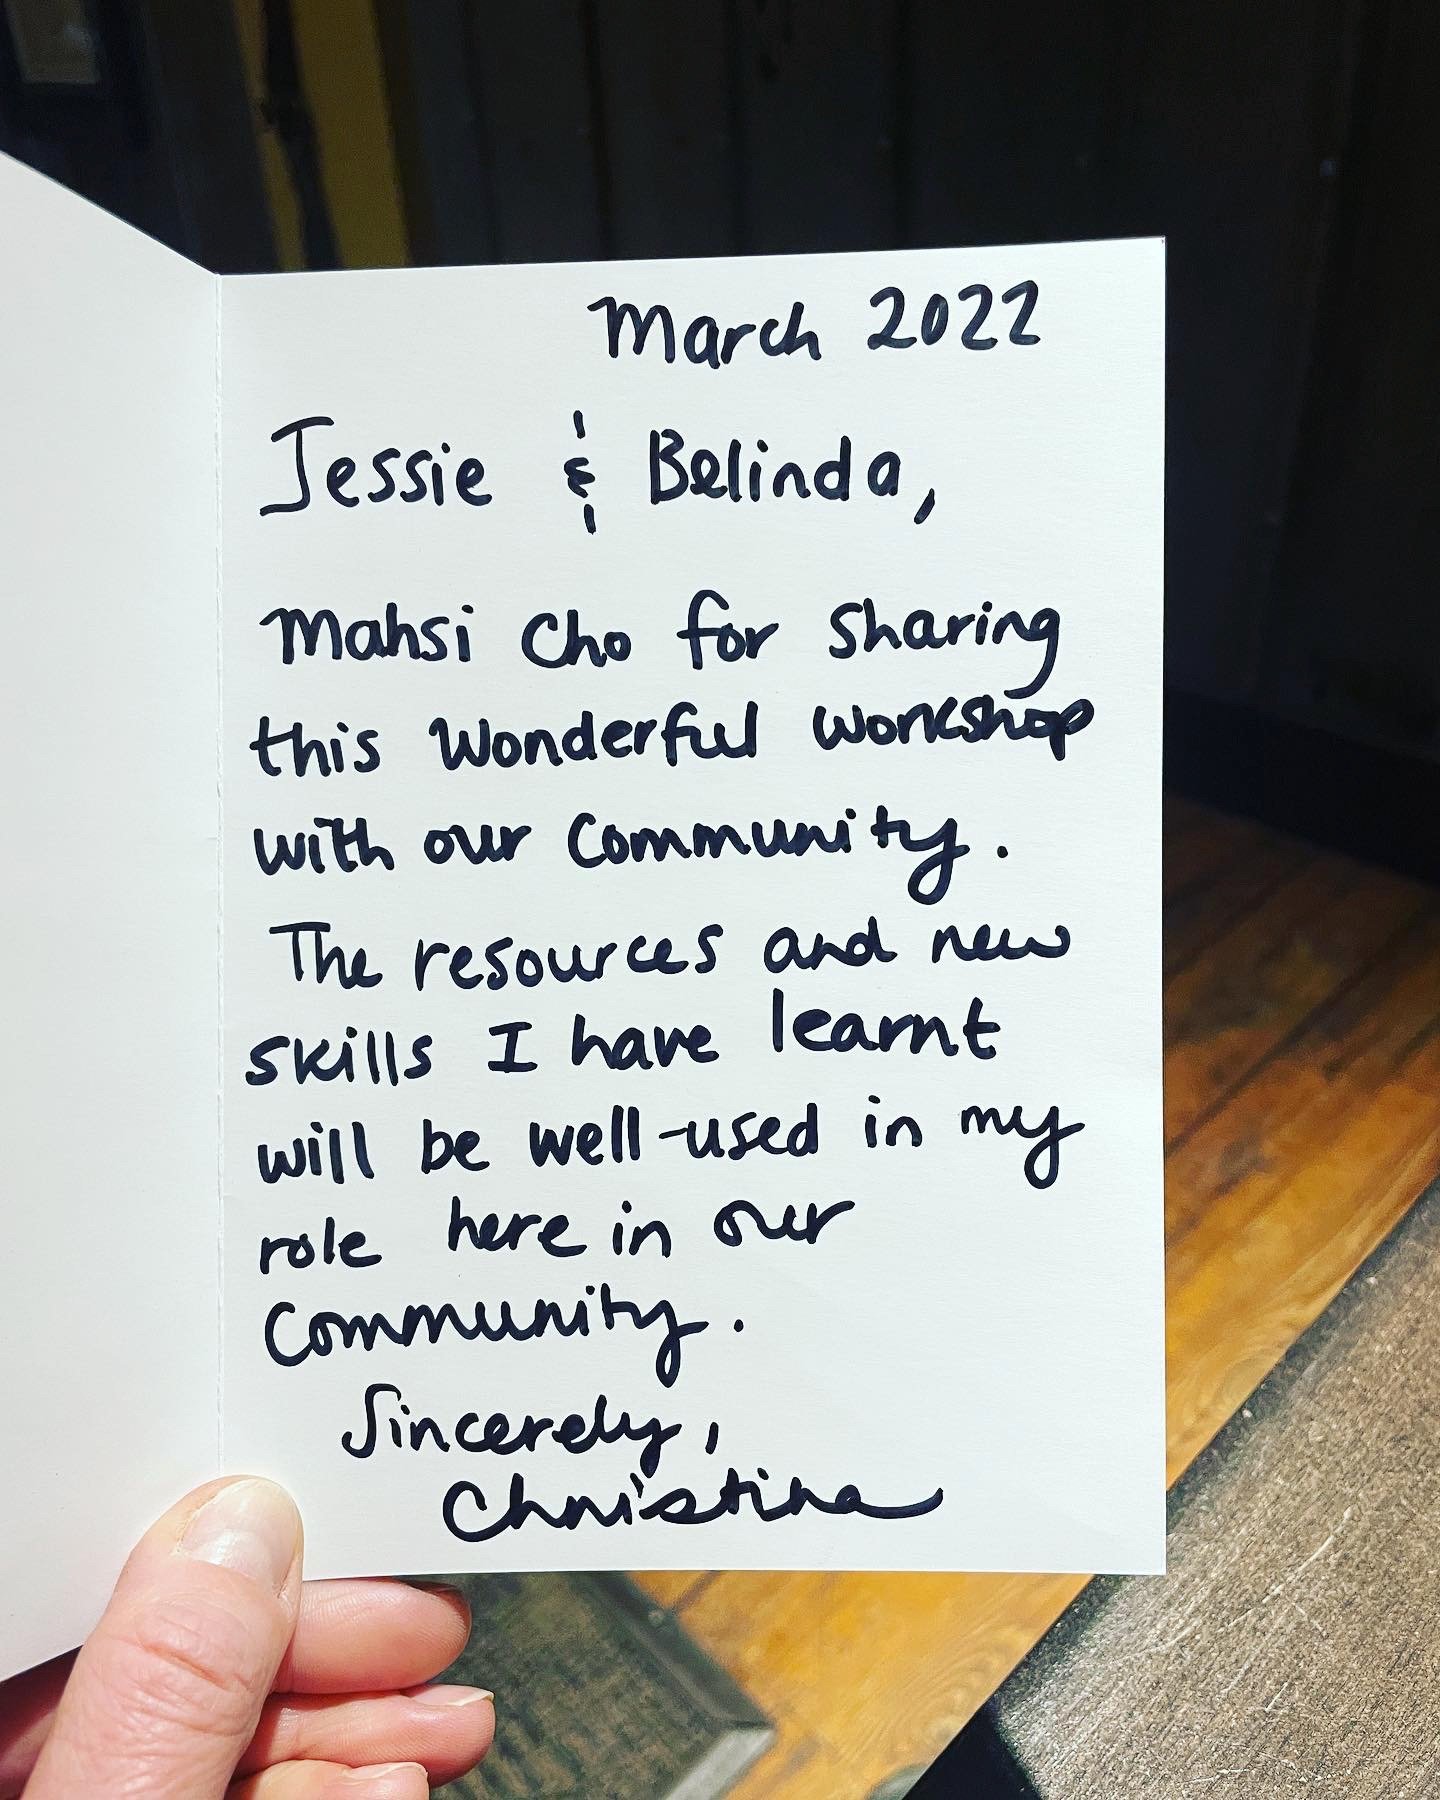 March 2022
Jessie & Belinda,
Mahsi Cho for sharing
this wonderful workshop
with our Community.
The resources and new
skills I have learnt
will be well-used in my
role here in our
Community.
Sincerely,
Christina